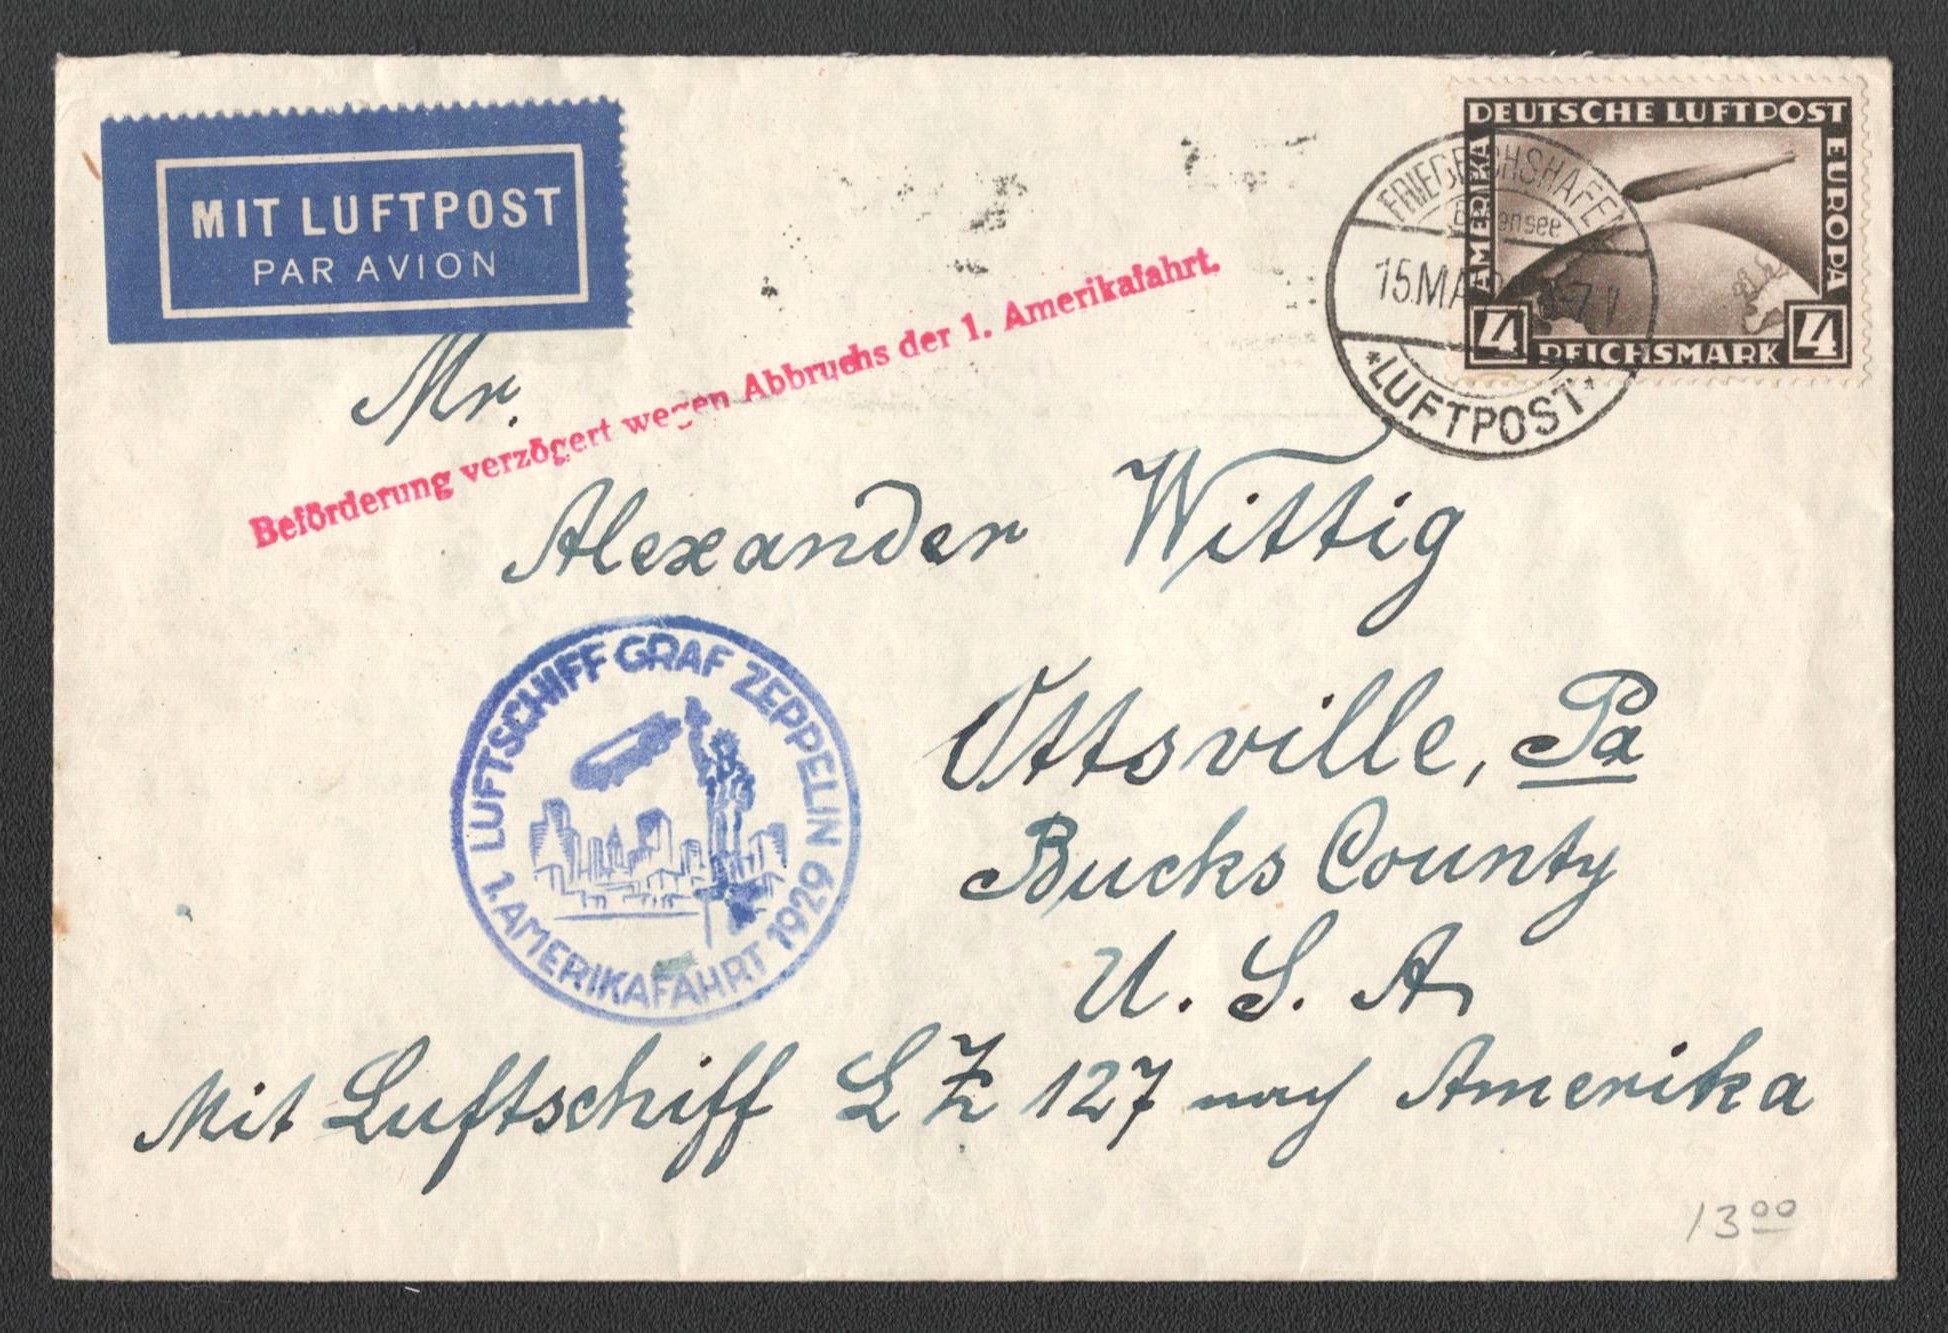 MIT LUFTPOST
PAR AVION
DEUTSCHE LUFTPOST
AMERIKA
EUROPA
4 REICHSMARK 4
FRIEDRICHSHAFEN
Bodensee
15.MA
7-
* LUFTPOST *
Beförderung verzögert wegen Abbruchs der 1. Amerikafahrt.
Mr.
Alexander Wittig
Ottsville, Pa
Bucks County
U. S. A.
LUFTSCHIFF GRAF ZEPPELIN
1. AMERIKAFAHRT 1929
Mit Luftschiff L Z 127 nach Amerika
13 00